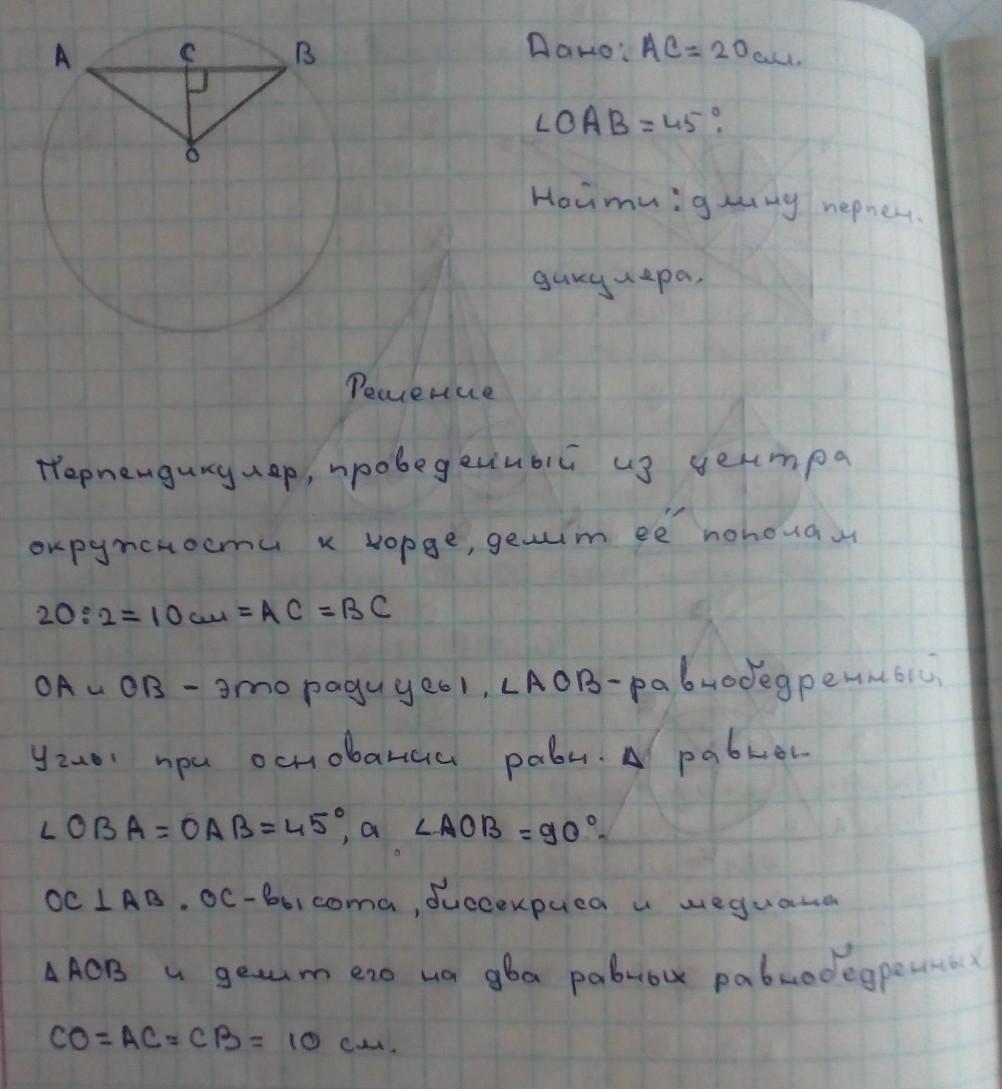 A C B
O
Дано: AC = 20 см.
∠OAB = 45°.
Найти: длину перпен-
дикуляра.
Решение
Перпендикуляр, проведенный из центра
окружности к хорде, делит её пополам
20:2 = 10 см = AC = BC
OA и OB - это радиусы, ∠AOB - равнобедренный
Углы при основании равн. Δ равны
∠OBA = OAB = 45°, а ∠AOB = 90°.
OC ⊥ AB. OC - высота, биссекриса и медиана
ΔAOB и делит его на два равных равнобедренных
CO = AC = CB = 10 см.